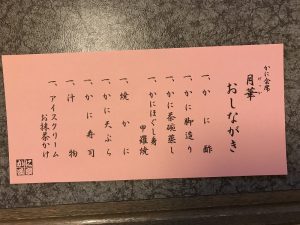 かに会席
月華
おしながき
一、かに酢
一、かに脚造り
一、かに茶碗蒸し
一、かにほぐし身
甲羅焼
一、焼かに
一、かに天ぷら
一、かに寿司
一、汁物
一、アイスクリーム
お抹茶かけ